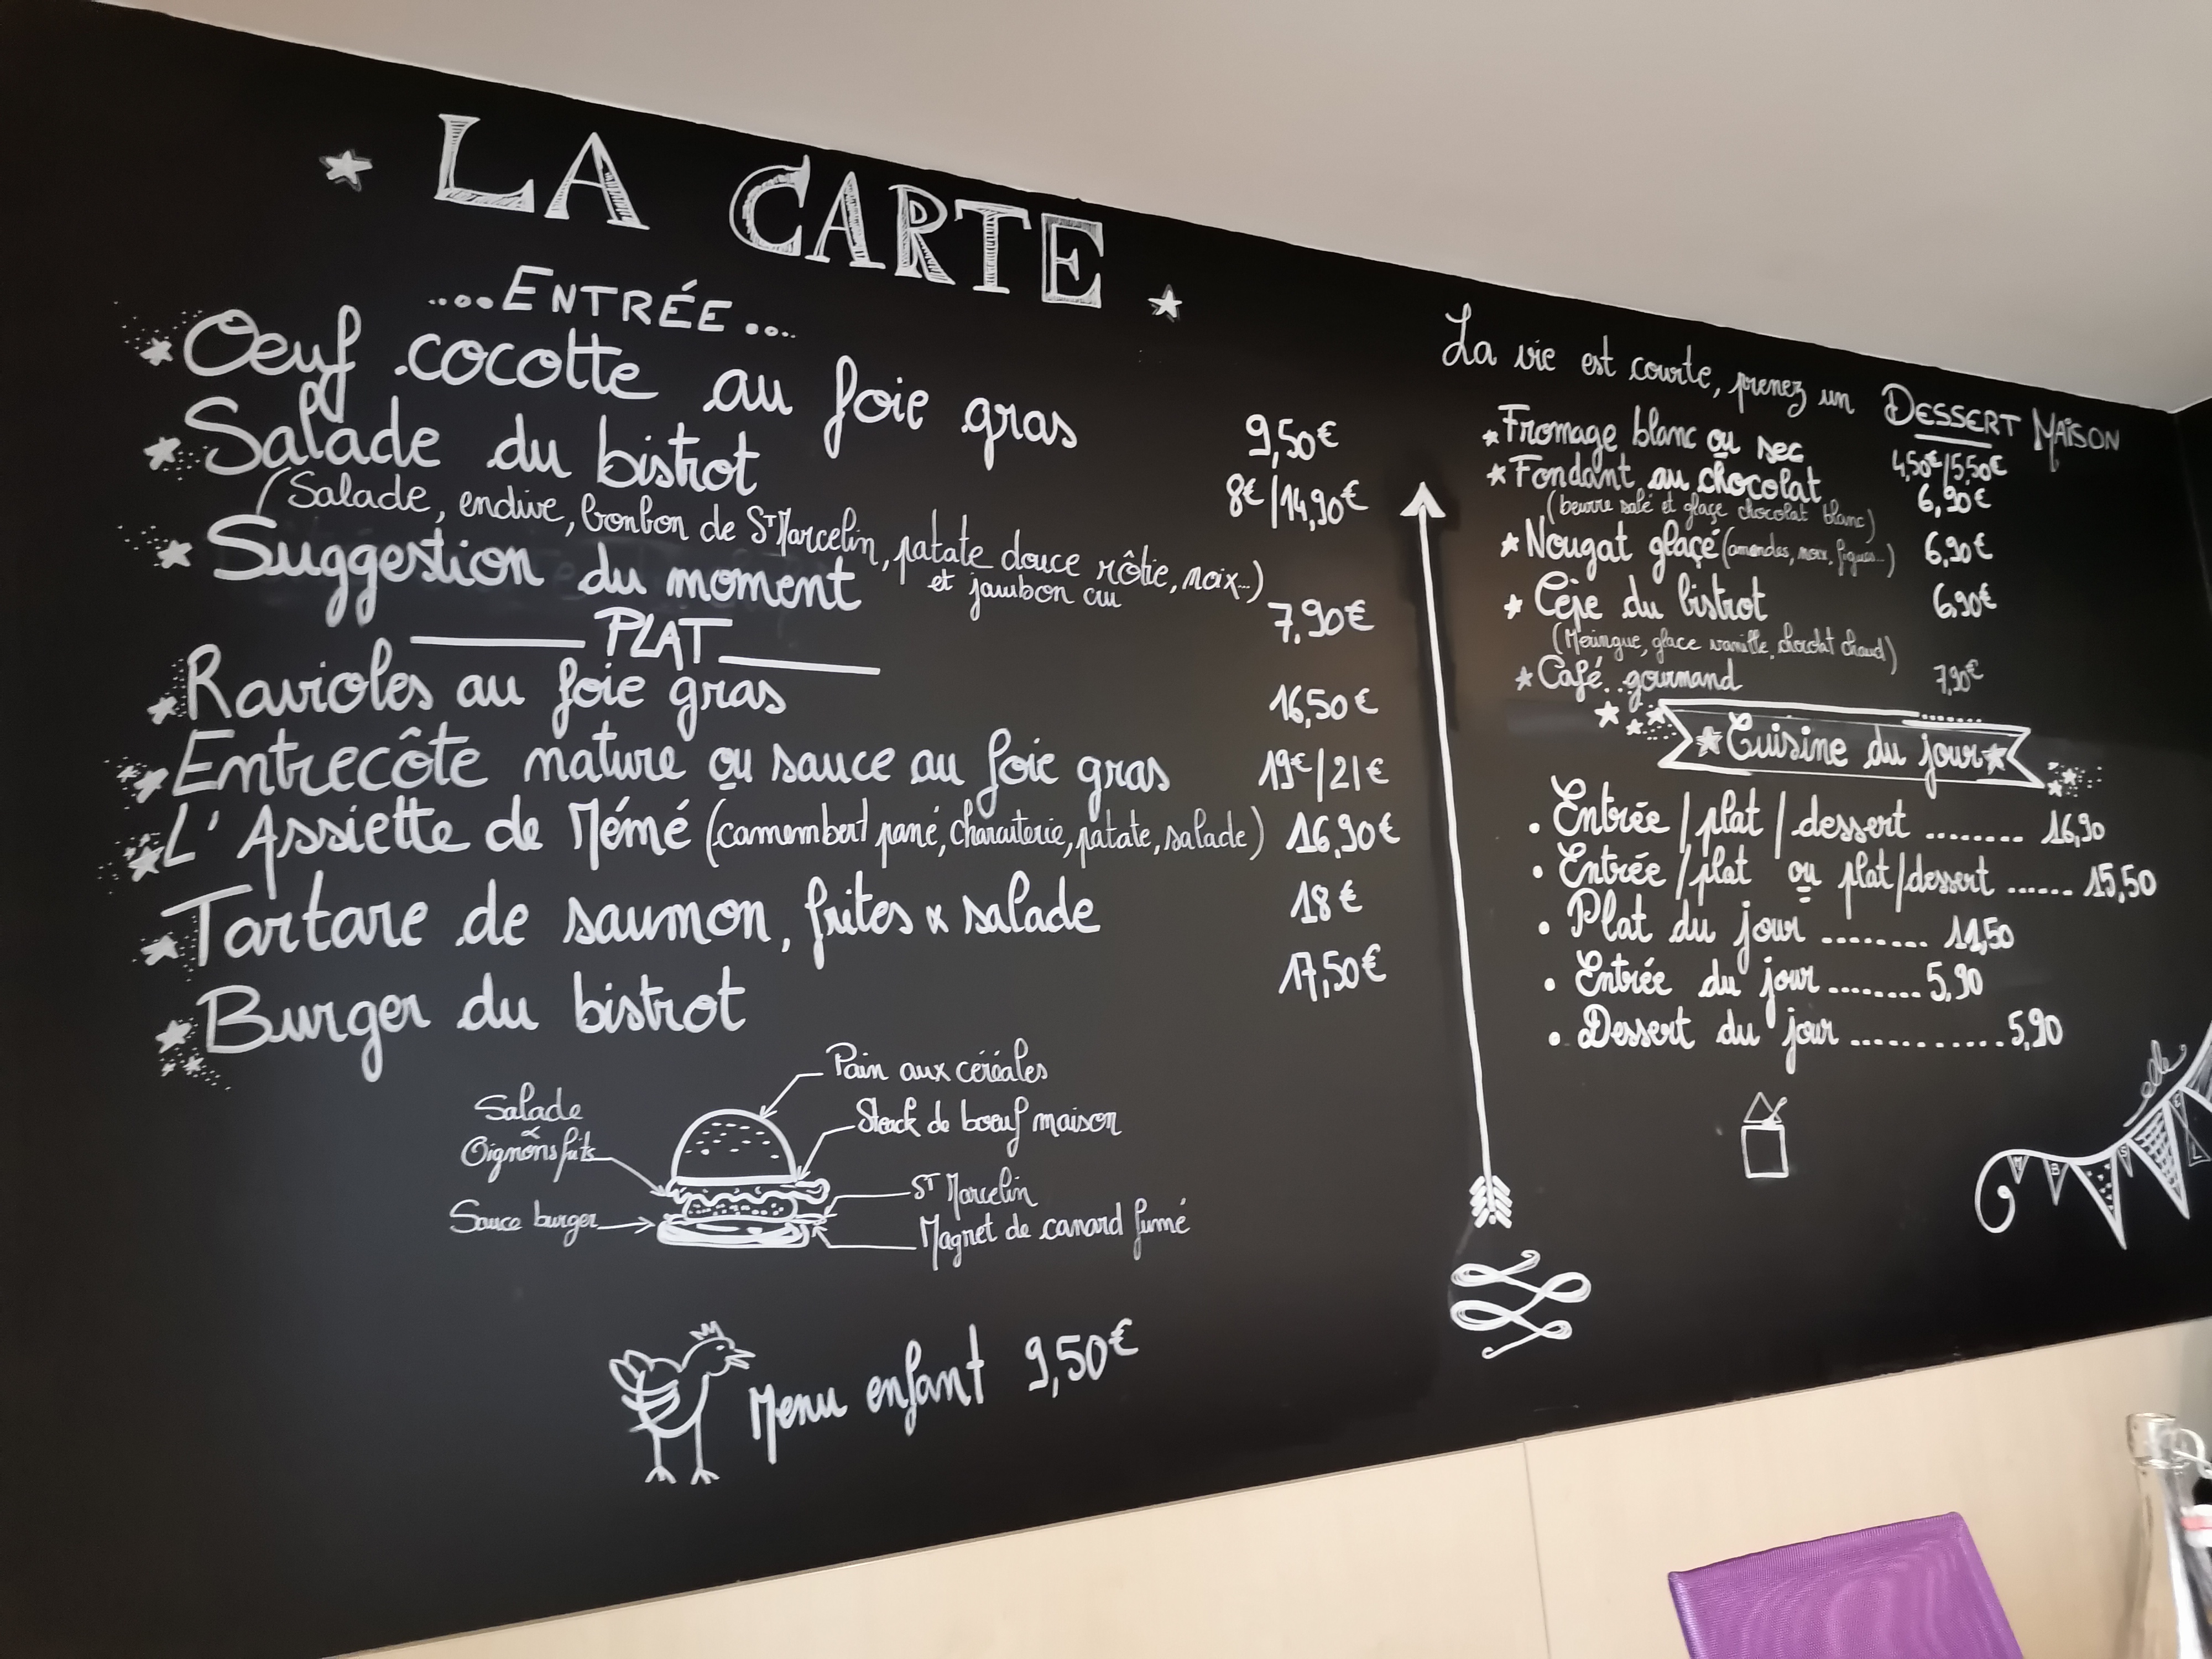 LA CARTE
....ENTRÉE....
Oeuf cocotte au foie gras 9,50€
Salade du bistrot 8€/14,90€
(Salade, endive, bonbon de St Marcelin, patate douce rôtie, noix...)
et jambon cru
Suggestion du moment 7,90€
PLAT
Ravioles au foie gras 16,50€
Entrecôte nature ou sauce au foie gras 19€/21€
L'Assiette de Mémé (camembert pané, charcuterie, patate, salade) 16,90€
Tartare de saumon, frites & salade 18€
Burger du bistrot 17,50€
Pain aux céréales
Salade
&
Oignons frits
Steack de boeuf maison
St Marcelin
Sauce burger
Magret de canard fumé
Menu enfant 9,50€
La vie est courte, prenez un DESSERT MAISON
Fromage blanc ou sec 4,50€/5,50€
Fondant au chocolat 6,90€
(beurre salé et glaçe chocolat blanc)
Nougat glaçé (amandes, noix, figues...) 6,90€
Cépe du bistrot 6,90€
(Meringue, glace vanille, chocolat chaud)
Café gourmand 7,90€
Cuisine du jour
Entrée/plat/dessert ........ 16,90
Entrée/plat ou plat/dessert ...... 15,50
Plat du jour ........ 11,50
Entrée du jour ........ 5,90
Dessert du jour ........... 5,90